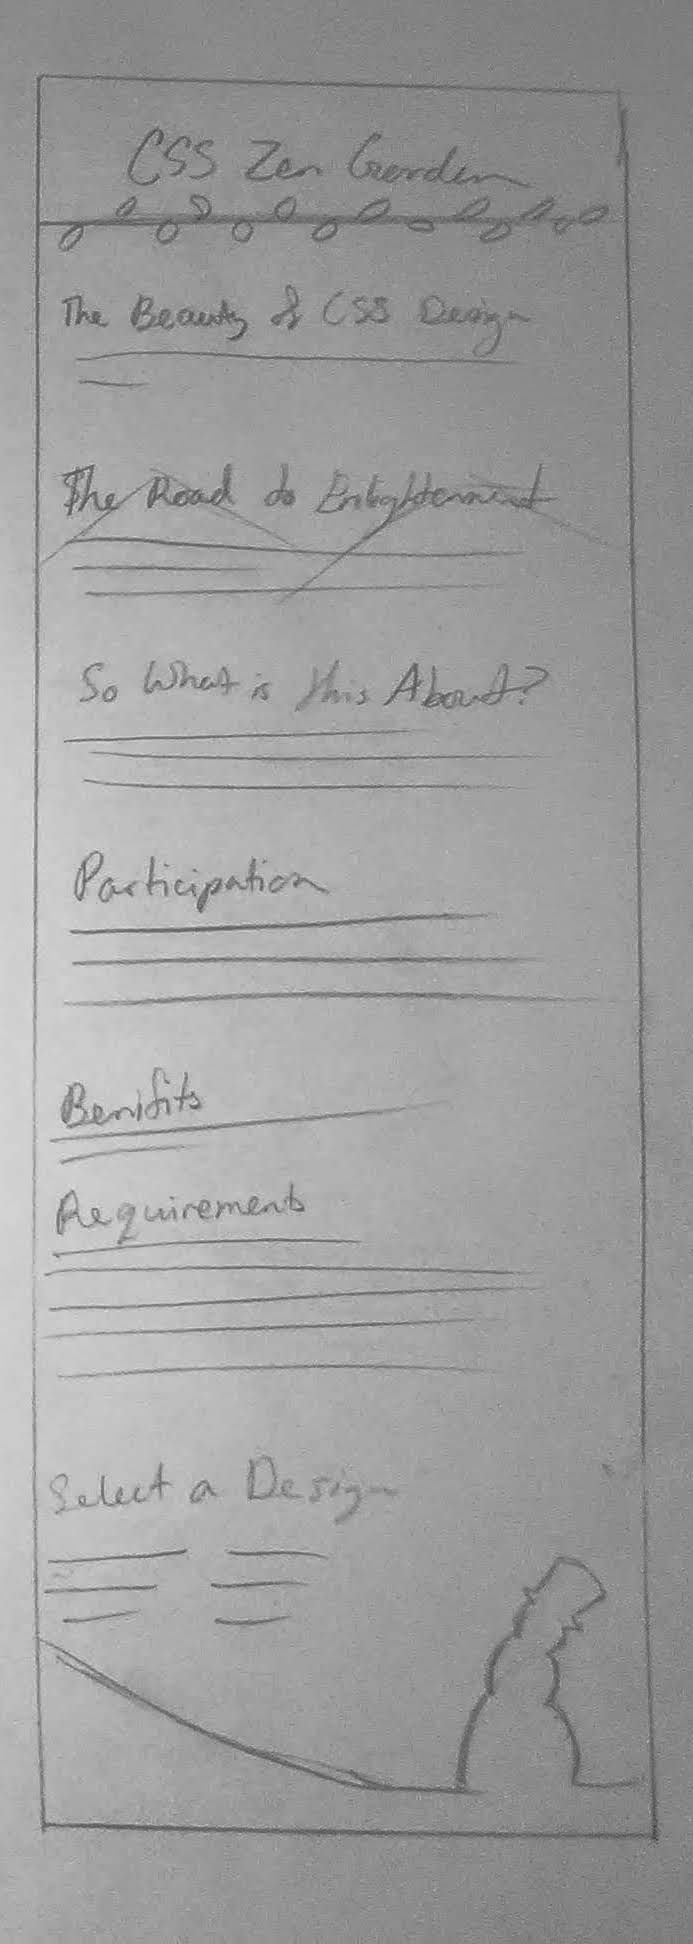 CSS Zen Garden
The Beauty of CSS Design
The Road to Enlightenment
So What is this About?
Participation
Benifits
Requirements
Select a Design